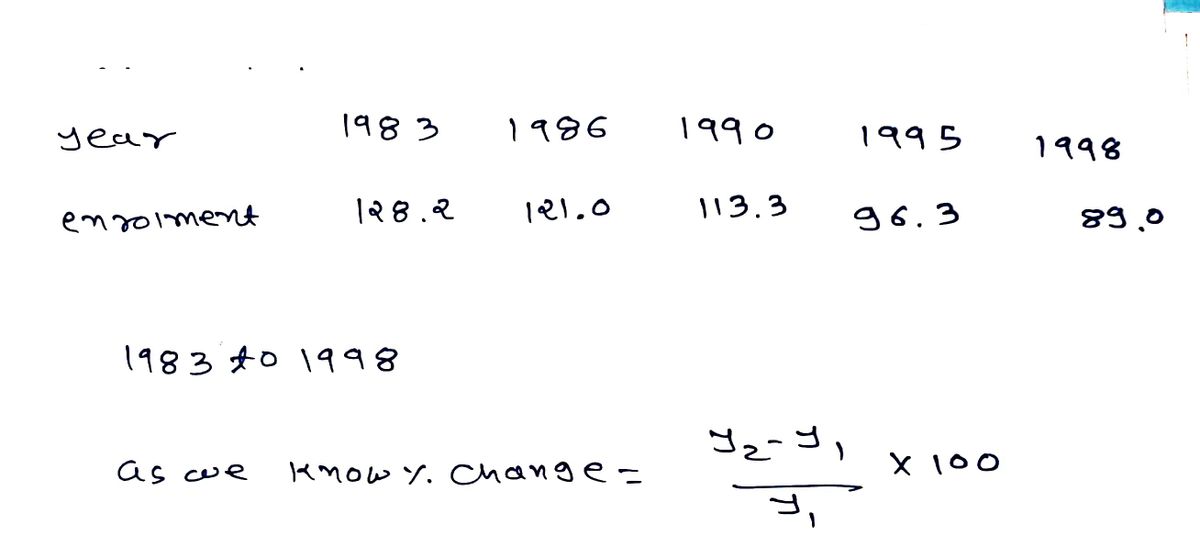 year 1983 1986 1990 1995 1998
enrolment 128.2 121.0 113.3 96.3 89.0
1983 to 1998
as we know % change = y₂-y₁ / y₁ × 100